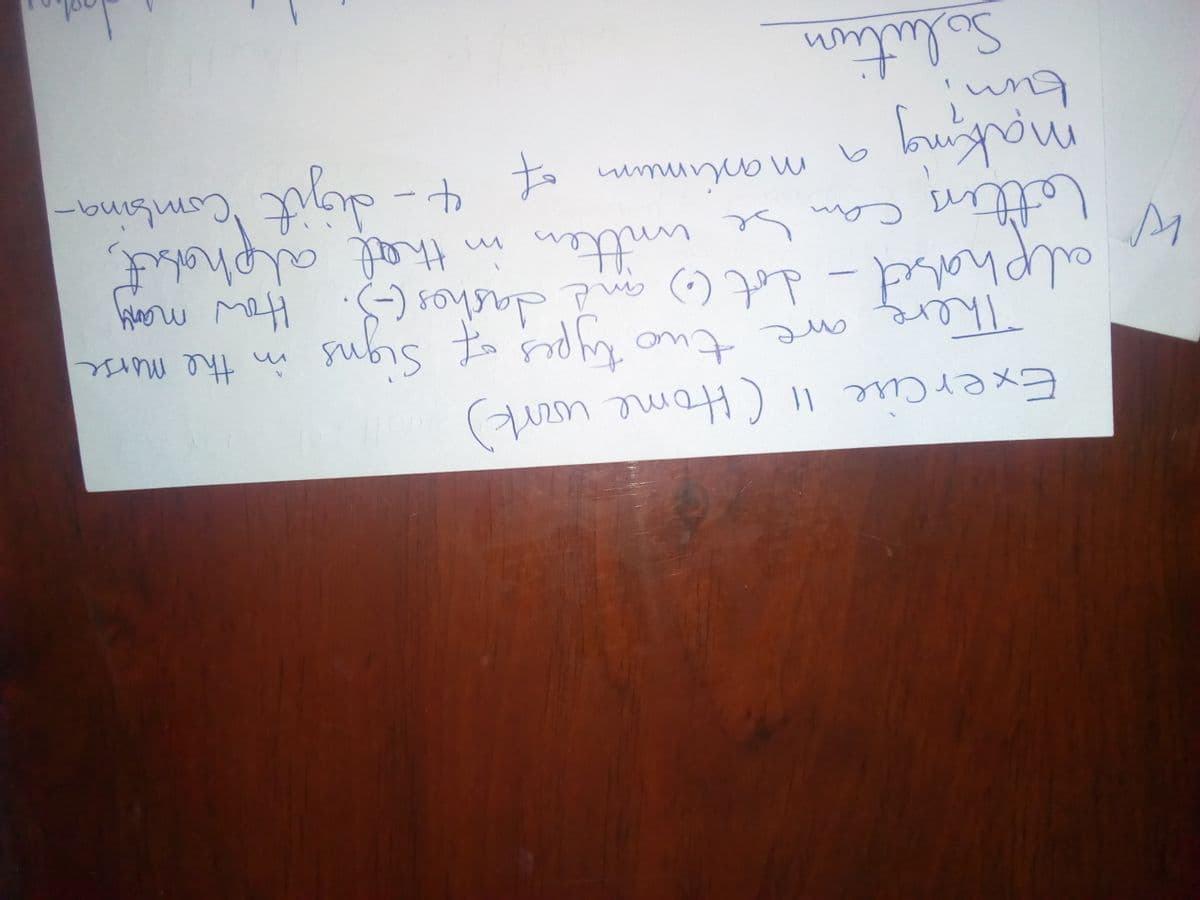 Exercise 11 (Home work)
There are two types of signs in the morse
alphabet - dot (.) and dashes (-). How many
letters can be written in that alphabet,
making a maximum of 4 - digit combina-
tion?
Solution